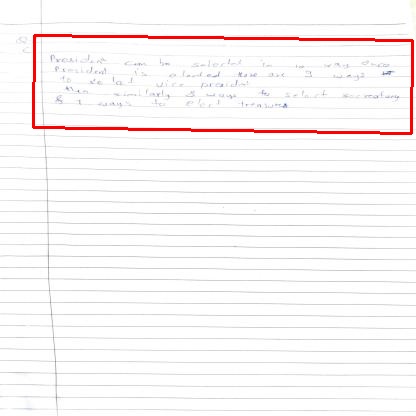 President can be selected in 10 way once
President is elected there are 9 ways
to select vice president
then similarly 8 ways to select secretary
& 7 ways to elect treasurer